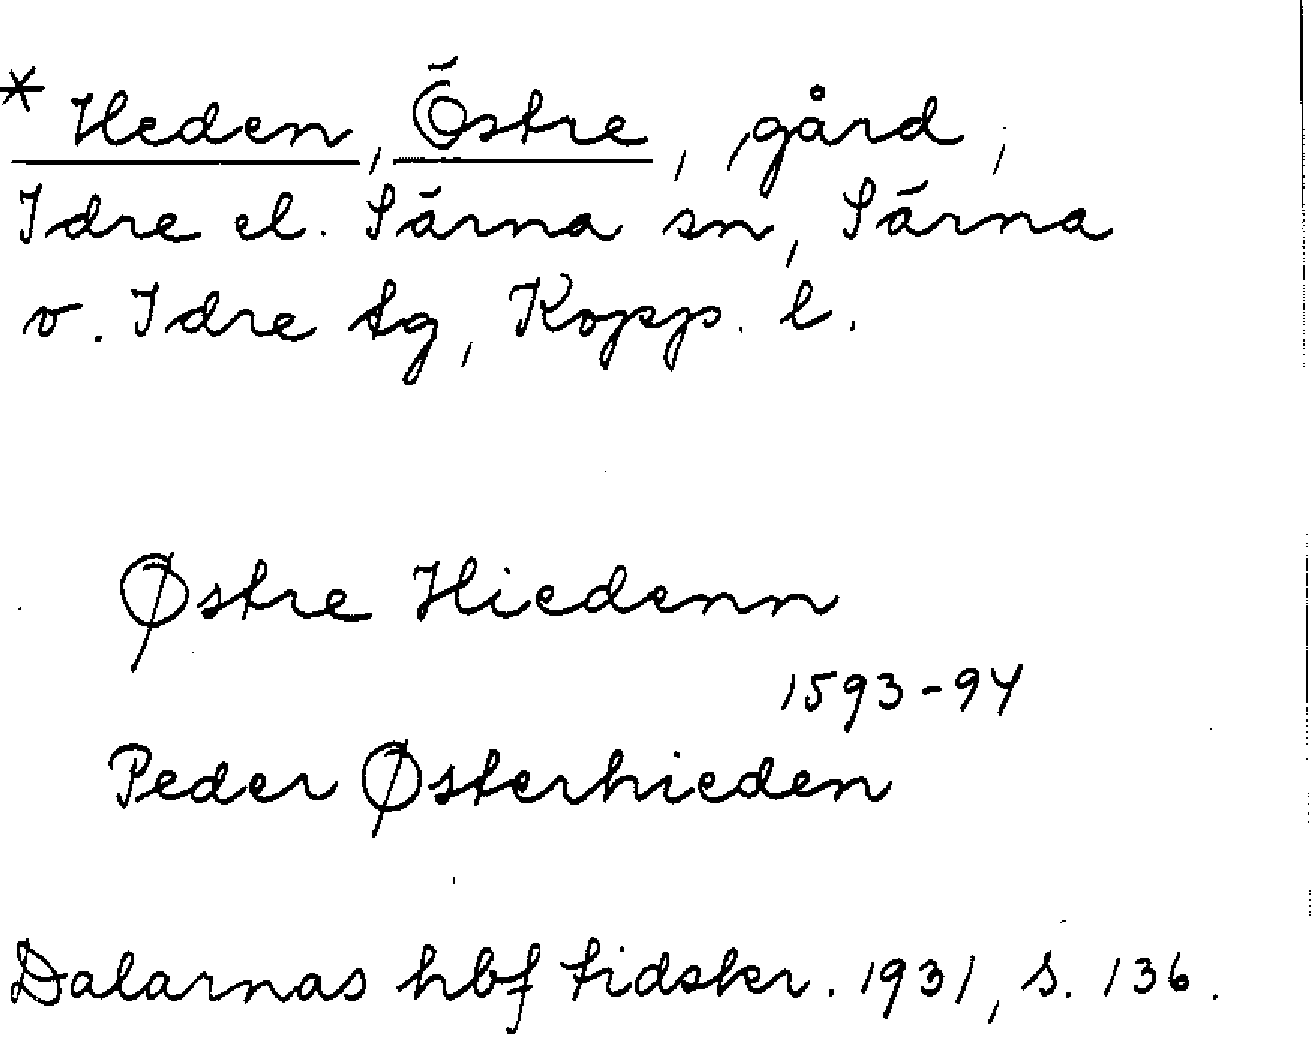 * Heden, Östre, gård,
Idre el. Särna sn, Särna
o. Idre tg, Kopp. l.
Østre Hiedenn
1593-94
Peder Østerhieden
Dalarnas hbf tidskr. 1931, s. 136.